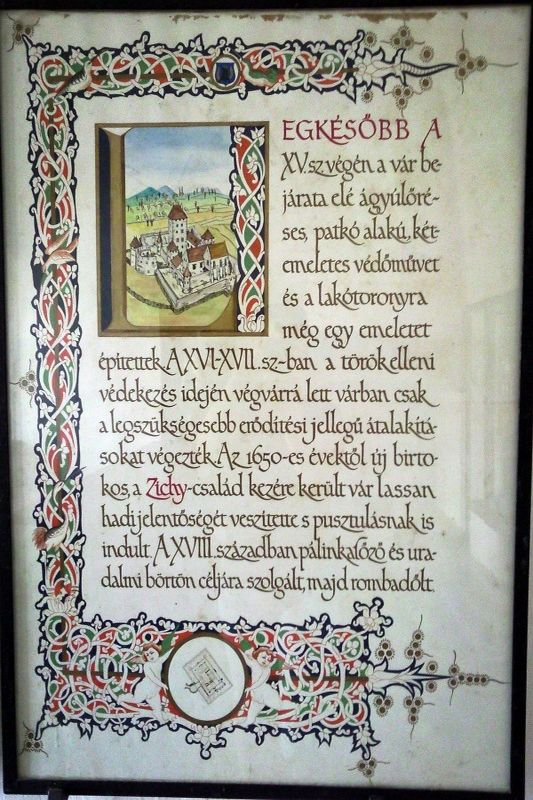 LEGKÉSŐBB A
XV. sz végén, a vár be-
járata elé ágyúlőré-
ses, patkó alakú, két-
emeletes védőművet
és a lakótoronyra
még egy emeletet
építettek. A XVI-XVII. sz-ban a török elleni
védekezés idején végvárrá lett várban csak
a legszükségesebb erődítési jellegű átalakítá-
sokat végezték. Az 1650-es évektől új birto-
kos, a Zichy-család kezére került vár lassan
hadi jelentőségét veszítette s pusztulásnak is
indult. A XVIII. században pálinkafőző és ura-
dalmi börtön céljára szolgált, majd rombadőlt.